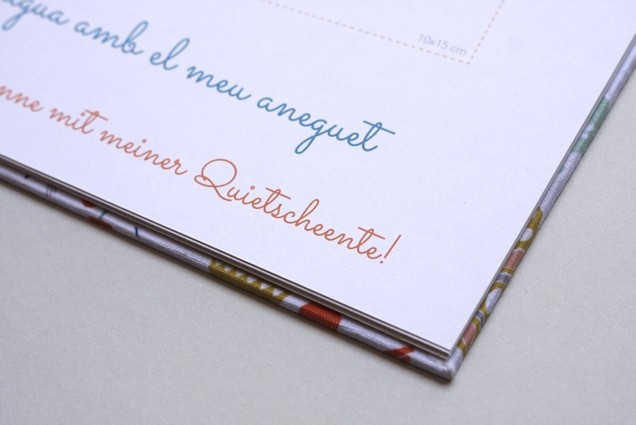 10x15 cm
amb el meu aneguet
mit meiner Quietscheente!